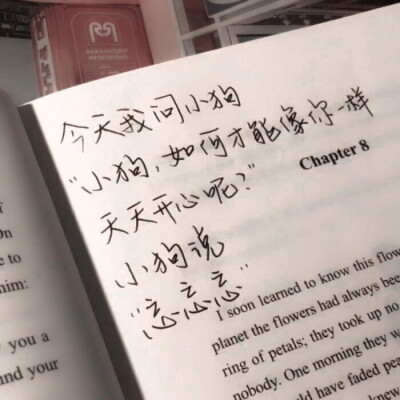 今天我问小狗
“小狗,如何才能像你一样
天天开心呢?”
小狗说
“忘忘忘”
Chapter 8
I soon learned to know this flow
planet the flowers had always bee
ring of petals; they took up no
nobody. One morning they w
ld have faded pea
knew
On
e to
him:
you a
nd your